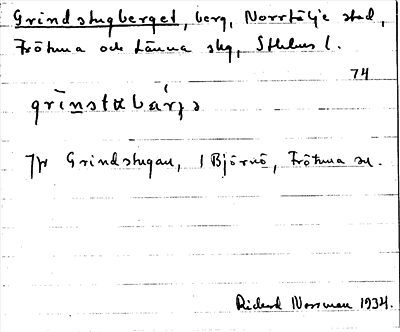 Grindstugberget, berg, Norrtälje stad,
Frötuna och Länna skg, Sthlms l.
74
grinstɑbárjə
Jfr Grindstugan, i Björnö, Frötuna sn.
Rickard Norrman 1934.